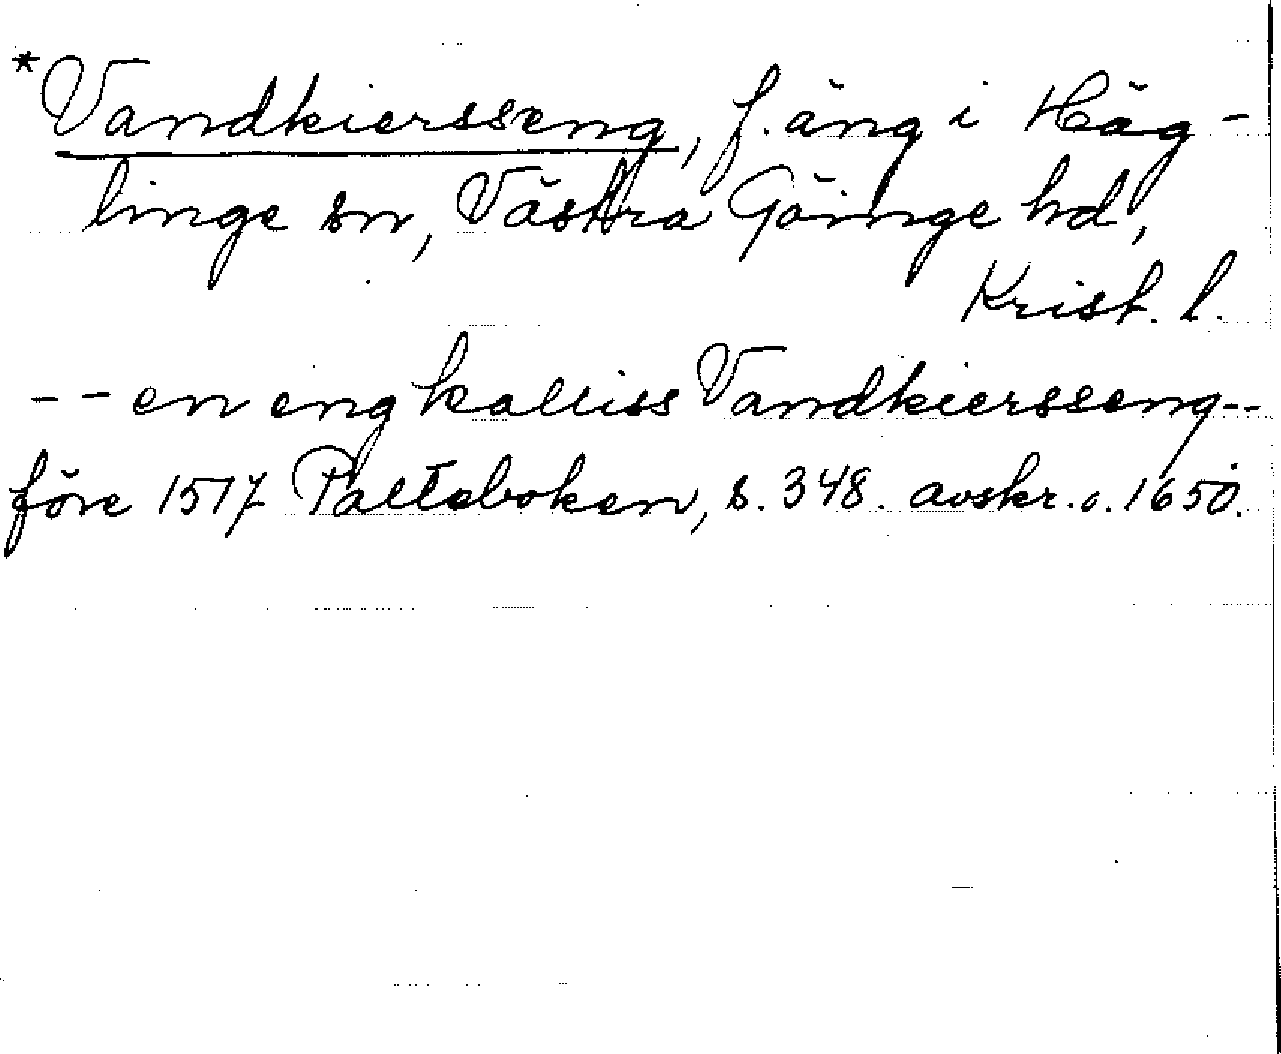 *Vandkiersseng, f. äng i Häg-
linge sn, Västra Göinge hd,
Krist. l.
-- en eng kalliss Vandkiersseng--
före 1517 Palteboken, s. 348. avskr. c. 1650.